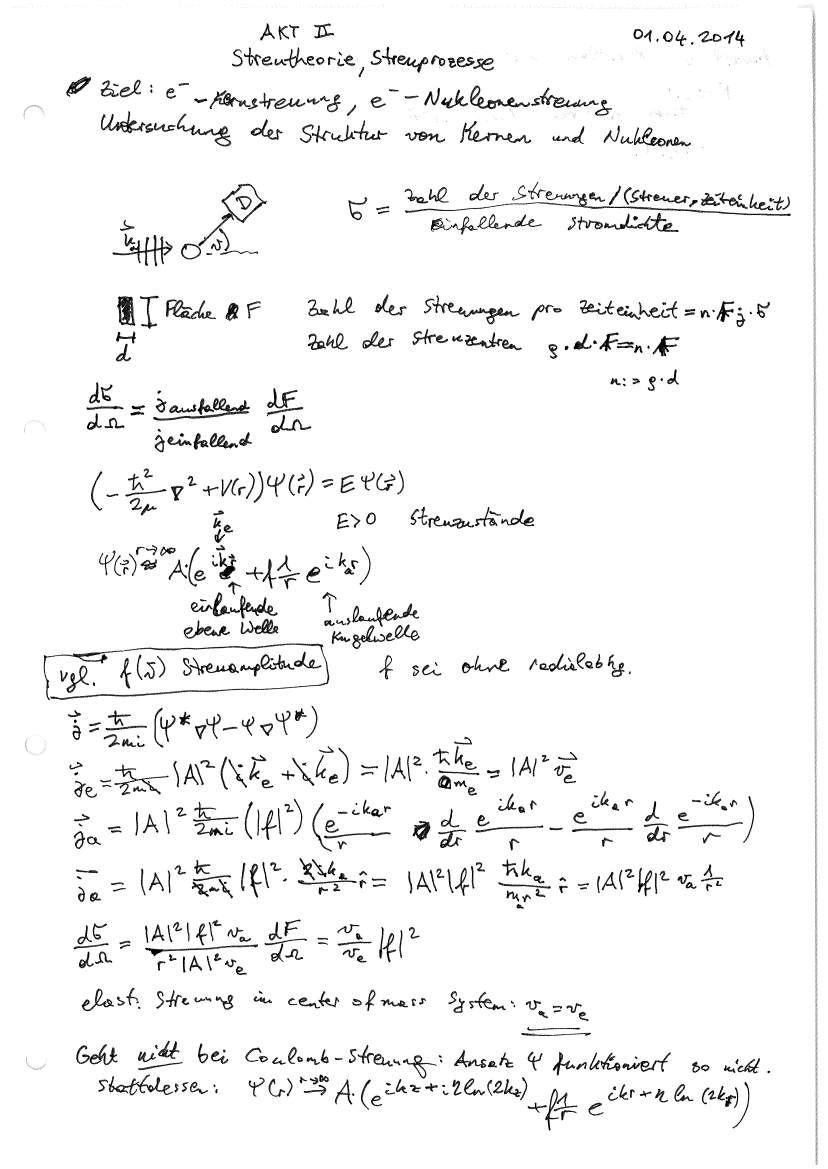 AKT II
01.04.2014
Streutheorie, Streuprozesse
Ziel: e⁻ - Kernstreuung, e⁻ - Nukleonenstreuung
Untersuchung der Struktur von Kernen und Nukleonen
D
v⃗ₑ ϑ
σ = Zahl der Streuungen / (Streuer, Zeiteinheit) / einfallende Stromdichte
Fläche F Zahl der Streuungen pro Zeiteinheit = n·F j·σ
d Zahl der Streuzentren ρ·d·F = n·F
n := ρ·d
dσ/dΩ = j ausfallend / j einfallend dF/dΩ
(-ħ²/2μ ∇² + V(r)) Ψ(r⃗) = E Ψ(r⃗)
k⃗ₑ E>0 Streuzustände
Ψ(r⃗) r→∞ ≈ A·(e^{ik⃗r⃗} + f 1/r e^{ikₐr})
↑ einlaufende ebene Welle
↑ auslaufende Kugelwelle
vgl. f(ϑ) Streuamplitude f sei ohne radialabhg.
j⃗ = ħ/2mi (Ψ* ∇Ψ - Ψ ∇Ψ*)
j⃗ₑ = ħ/2mi |A|² (ik⃗ₑ + ik⃗ₑ) = |A|² · ħk⃗ₑ/mₑ = |A|² v⃗ₑ
j⃗ₐ = |A|² ħ/2mi (|f|²) (e^{-ikₐr}/r d/dr e^{ikₐr}/r - e^{ikₐr}/r d/dr e^{-ikₐr}/r)
j⃗ₐ = |A|² ħ/2mi |f|² · 2ikₐ/r² r̂ = |A|²|f|² ħkₐ/mₐr² r̂ = |A|²|f|² vₐ 1/r²
dσ/dΩ = |A|²|f|² vₐ / r²|A|² vₑ dF/dΩ = vₐ/vₑ |f|²
elast. Streuung im center of mass System: vₐ = vₑ
Geht nicht bei Coulomb-Streuung: Ansatz Ψ funktioniert so nicht.
Stattdessen: Ψ(r) r→∞ → A·(e^{ikz + iη ln(2kz)} + f 1/r e^{ikr + η ln(2kr)})